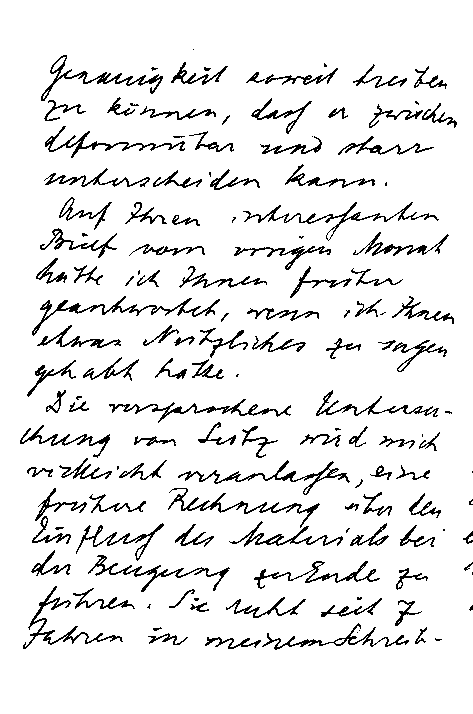 Genauigkeit soweit treiben
zu können, daß er zwischen
deformirbar und starr
unterscheiden kann.
Auf Ihren interessanten
Brief vom vorigen Monat
hätte ich Ihnen früher
geantwortet, wenn ich Ihnen
etwas Nützliches zu sagen
gehabt hätte.
Die versprochene Untersu-
chung von Seitz wird mich
vielleicht veranlassen, eine
frühere Rechnung über den
Einfluß des Materials bei
der Beugung zu Ende zu
führen. Sie ruht seit 7
Jahren in meinem Schreib-